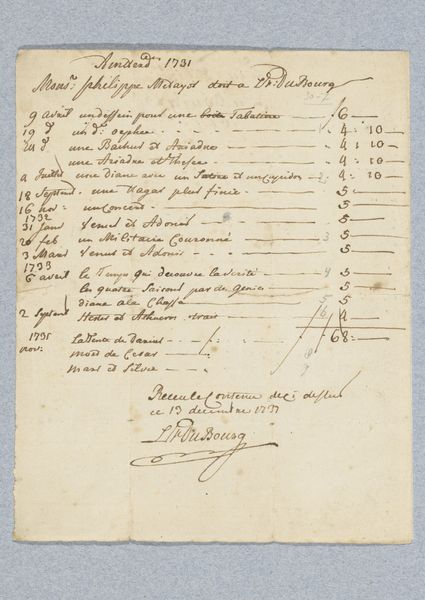 Amsterdam 1731
Monsr. philippe Metayer doit a L Fr: DuBourg
9 avril un dessein pour une boite Tabatiere — 6 —
19 d° un d°: orphee — 1 4: 10 —
une Bachus et Ariadne — 4: 10 —
une Ariadne et Thesee — 4: 10 —
une diane avec un Satire et un Cupidon — 2 4: 10 —
18 Septemb - une Hagar plus finie — 5 —
16 nov: - un Concert — 5 —
1732
31 Janv Venus et Adonis — 5 —
20 feb un Militaire Couronné — 3 5 —
3 Mars Venus et Adonis — 5 —
1733
6 avril le Temps qui decouvre la verité — 4 5 —
les quatre Saisons par des Genies — 5 —
diane a la Chasse — 5 5 —
2 Septemb — 6 4 —
1735 La Tente de Darius — 68: —
nov: mort de Cesar —
mars et Silvie —
Receu le Contenu de Ci dessus
ce 13 decembre 1737
L Fr DuBourg